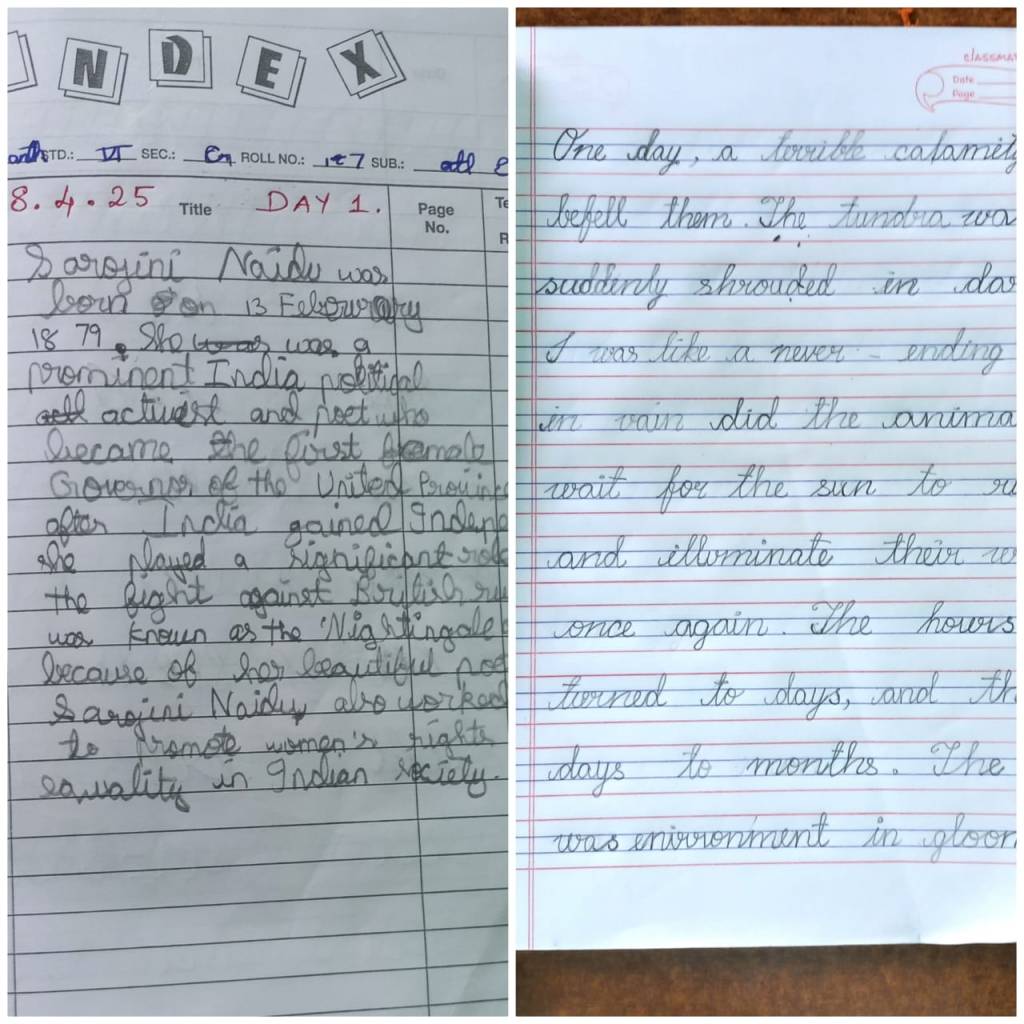 N D E X
STD.: VI SEC.: ROLL NO.: SUB.:
8.4.25 Title DAY 1. Page No. Te
R
Sarojini Naidu was
born on 13 Feboruary
1879. She was a
prominent India political
activist and poet who
became the first female
Governor of the United Province
after India gained Indep
she played a significant role
the fight against British ru
was known as the 'Nightingale
because of her beautiful poe
Sarojini Naidu also worked
to promote women's rights
equality in Indian society.
classmat
Date
Page
One day, a terrible calamity
befell them. The tundra wa
suddenly shrouded in dar
I was like a never-ending
in vain did the anima
wait for the sun to
and illuminate their
once again. The hours
turned to days, and th
days to months. The
was enivronment in gloom